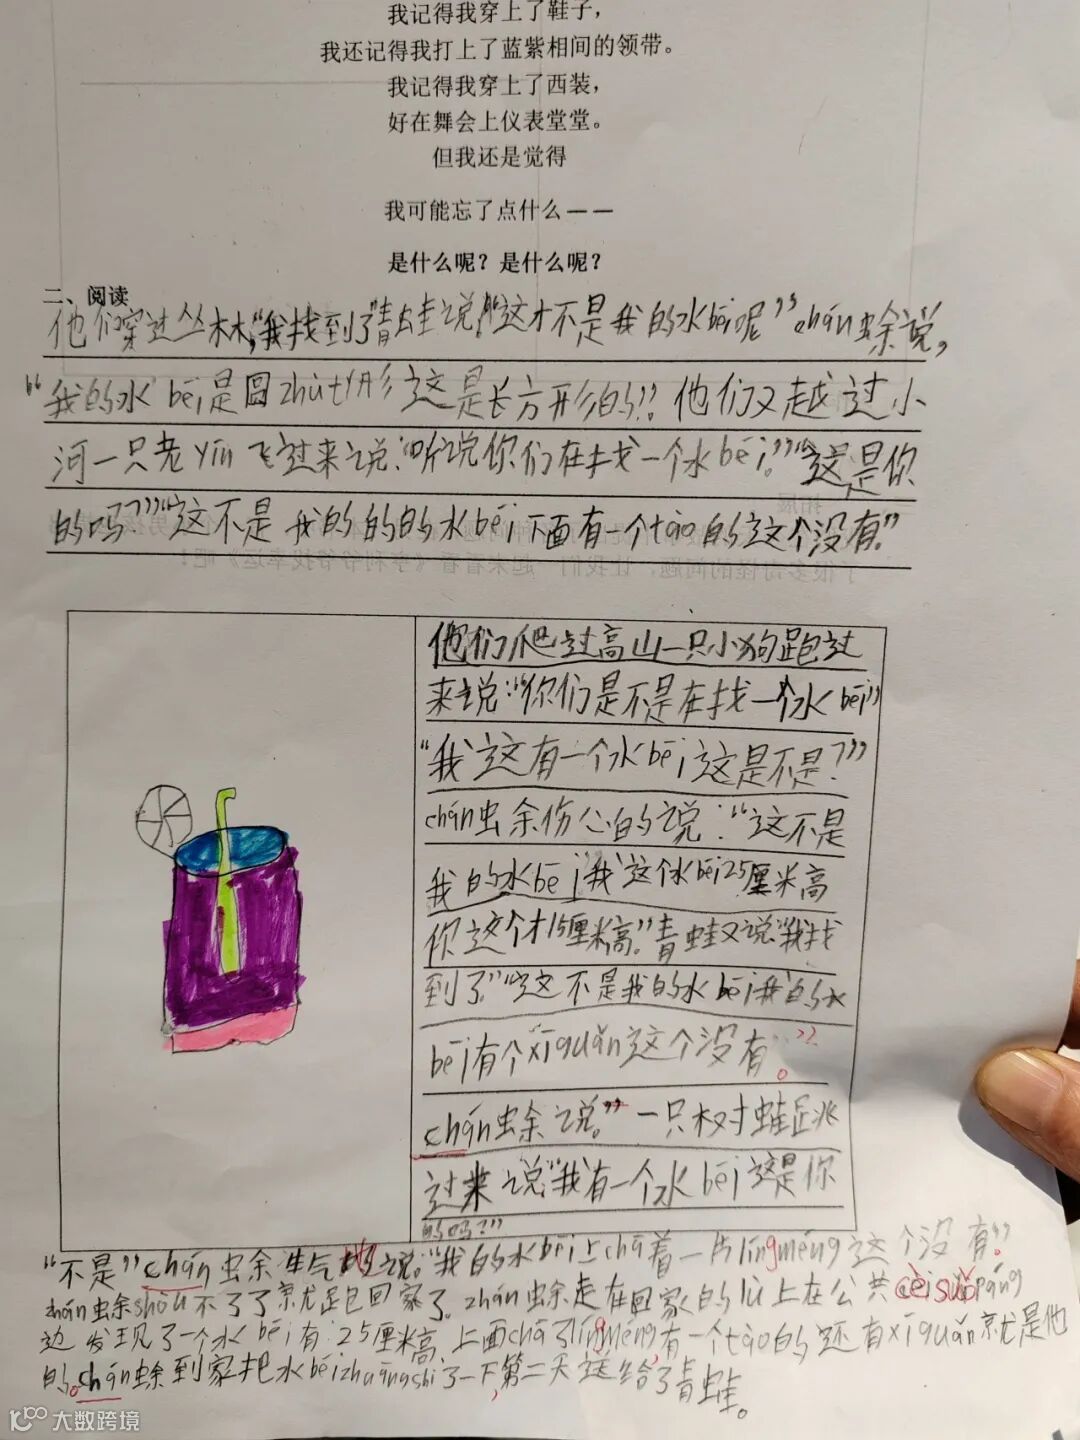 我记得我穿上了鞋子，
我还记得我打上了蓝紫相间的领带。
我记得我穿上了西装，
好在舞会上仪表堂堂。
但我还是觉得
我可能忘了点什么——
是什么呢？是什么呢？
二、阅读
他们穿过丛林，“我找到了”青蛙说，“这才不是我的水bēi呢”chán蜍说，
“我的水bēi是圆zhùtǐ形这是长方形的”。他们又越过小
河一只老yīn飞过来说：“听说你们在找一个水bēi。”“这是你
的吗？”“这不是我的的的水bēi下面有一个tào的这个没有。”
他们爬过高山一只小狗跑过
来说：“你们是不是在找一个水bēi”
“我这有一个水bēi这是不是？”
chán蜍伤心的说：“这不是
我的水bēi”我这个水bēi25厘米高
你这个才15厘米高。”青蛙又说“我找
到了。”“这不是我的水bēi我的水
bēi有个xīguǎn这个没有。”
chán蜍说。”一只树蛙跳
过来说“我有一个水bēi这是你
的吗？”
“不是”chán蜍生气地说。“我的水bēi上chā着一片língméng这个没有。”
zhán蜍shòu不了了就跑回家了。zhán蜍走在回家的lù上在公共cèisuǒpáng
边发现了一个水bēi有25厘米高，上面chā了língméng有一个tào的还有xīguǎn就是他
的。chán蜍到家把水bēizhuāngshì了一下，第二天送给了青蛙。
大数跨境